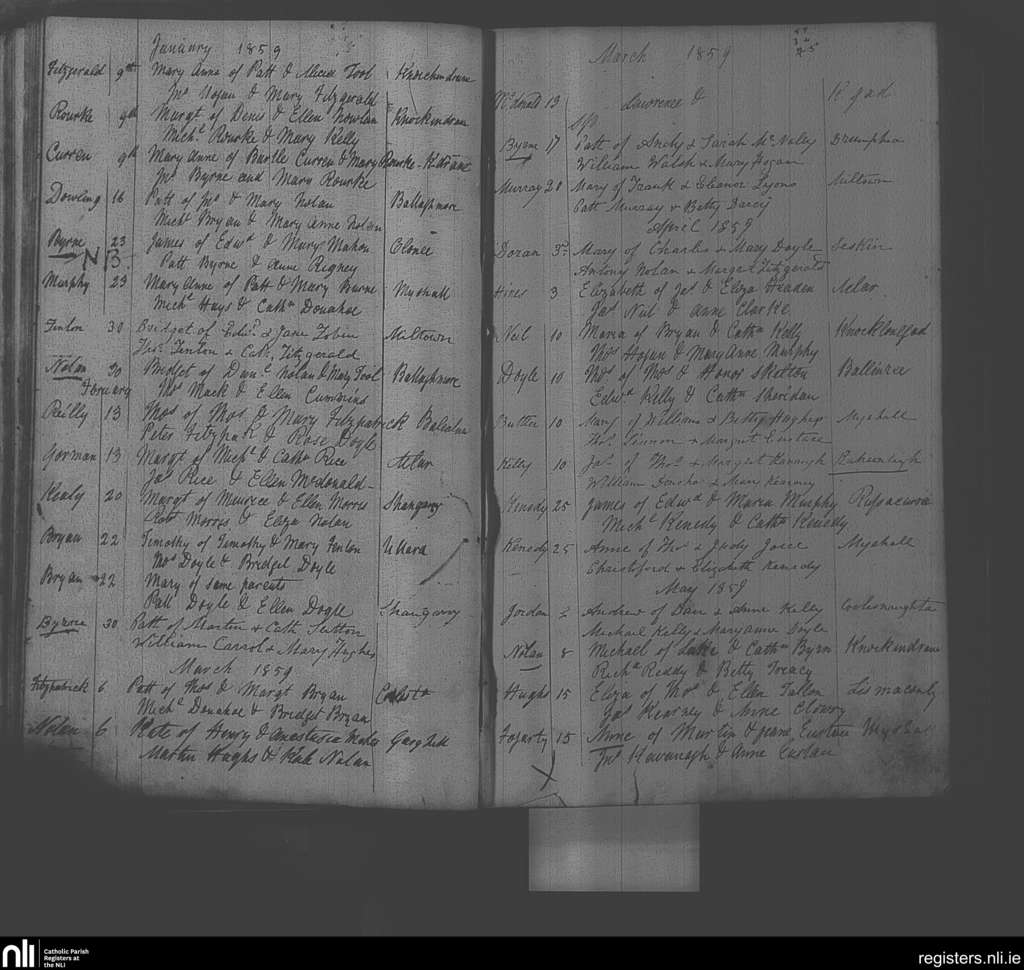 January 1859
Fitzgerald 9th Mary Anne of Patt & Alicia Tool Knockindrane
Jno Hogan & Mary Fitzgerald
Rourke 9th Margt of Denis & Ellen Nowlan Knockindrane
Michl Rourke & Mary Kelly
Curren 9th Mary Anne of Bartle Curren & Mary Rourke - Kilbrane
Jno Byrne and Mary Rourke
Dowling 16 Patt of Jno & Mary Nolan Ballaghmore
Michl Bryan & Mary Anne Nolan
Byrne 23 James of Edwd & Mary Mahon Clonee
NB. Patt Byrne & Anne Rigney
Murphy 23 Mary Anne of Patt & Mary Byrne Myshall
Michl Hays & Cathn Donahoe
Fenlon 30 Bridget of & Jane Tobin Milltown
Thos Fenlon & Cath. Fitzgerald
Nolan 30 Bridget of Danl Nolan & Mary Tool Ballaghmore
February Thos Mack & Ellen Cummins
Reilly 13 Thos of Thos & Mary Fitzpatrick
Peter Fitzpatk & Rose Doyle
Gorman 13 Margt of Michl & Cathn Rice Aclar
Jas Rice & Ellen McDonald -
Kealy 20 Margt of Maurice & Ellen Morris Shangarry
Robt Morris & Eliza Nolan
Bryan 22 Timothy of Timothy & Mary Fenlon Ullara
Thos Doyle & Bridget Doyle
Bryan 22 Mary of same parents
Patt Doyle & Ellen Doyle Shangarry
Byrne 30 Patt of Martin & Cath Sutton
William Carrol & Mary Hughes
March 1859
Fitzpatrick 6 Patt of Thos & Margt Bryan
Michl Donahoe & Bridget Bryan
Nolan 6 Kate of Henry & Anestacia Garyhill
Martin Hughs & Kate Nolan
March 1859
McDonald 13 Lawrence &
Sp
Byrne 17 Patt of Andy & Sarah McNally Drumphea
William Walsh & Mary Hogan
Murray 20 Mary of Frank & Eleanor Lyons Miltown
Patt Murray & Betty Darcy
April 1859
Doran 3rd Mary of Charles & Mary Doyle Seskin
Antony Nolan & Margret Fitzgerald
Hines 3 Elizabeth of Jas & Eliza Headen Aclar
Jas Neil & Anne Clarke
Neil 10 Maria of Bryan & Cathn Kelly
Thos Hogan & Mary Anne Murphy
Doyle 10 Thos of Thos & Honor Skelton Ballinree
Edwd Kelly & Cathn Sheridan
Butler 10 Mary of William & Betty Hughes Myshall
Thos & Margret Eustace
Kelly 10 Jas of Thos & Margret Kavangh
William & Mary Kearney
Kenedy 25 James of Edwd & Maria Murphy
Michl Kenedy & Cathn Kenedy
Kenedy 25 Anne of Thos & Judy Joice Myshall
Christford & Elizabeth Kenedy
May 1859
Jordan Andrew of Dan & Anne Kelly
Michael Kelly & Maryanne Doyle
Nolan 8 Michael of Luke & Cathn Byrn Knockindrane
Richd Reddy & Betty Treacy
Hughs 15 Eliza of Thos & Ellen Tallon Lismaconly
Jas Kearney & Anne Clowry
Fogarty 15 Anne of Martin & Jeane Eustace Myshal
Jno Kavanagh & Anne
X
nli
Catholic Parish
Registers at
the NLI
registers.nli.ie